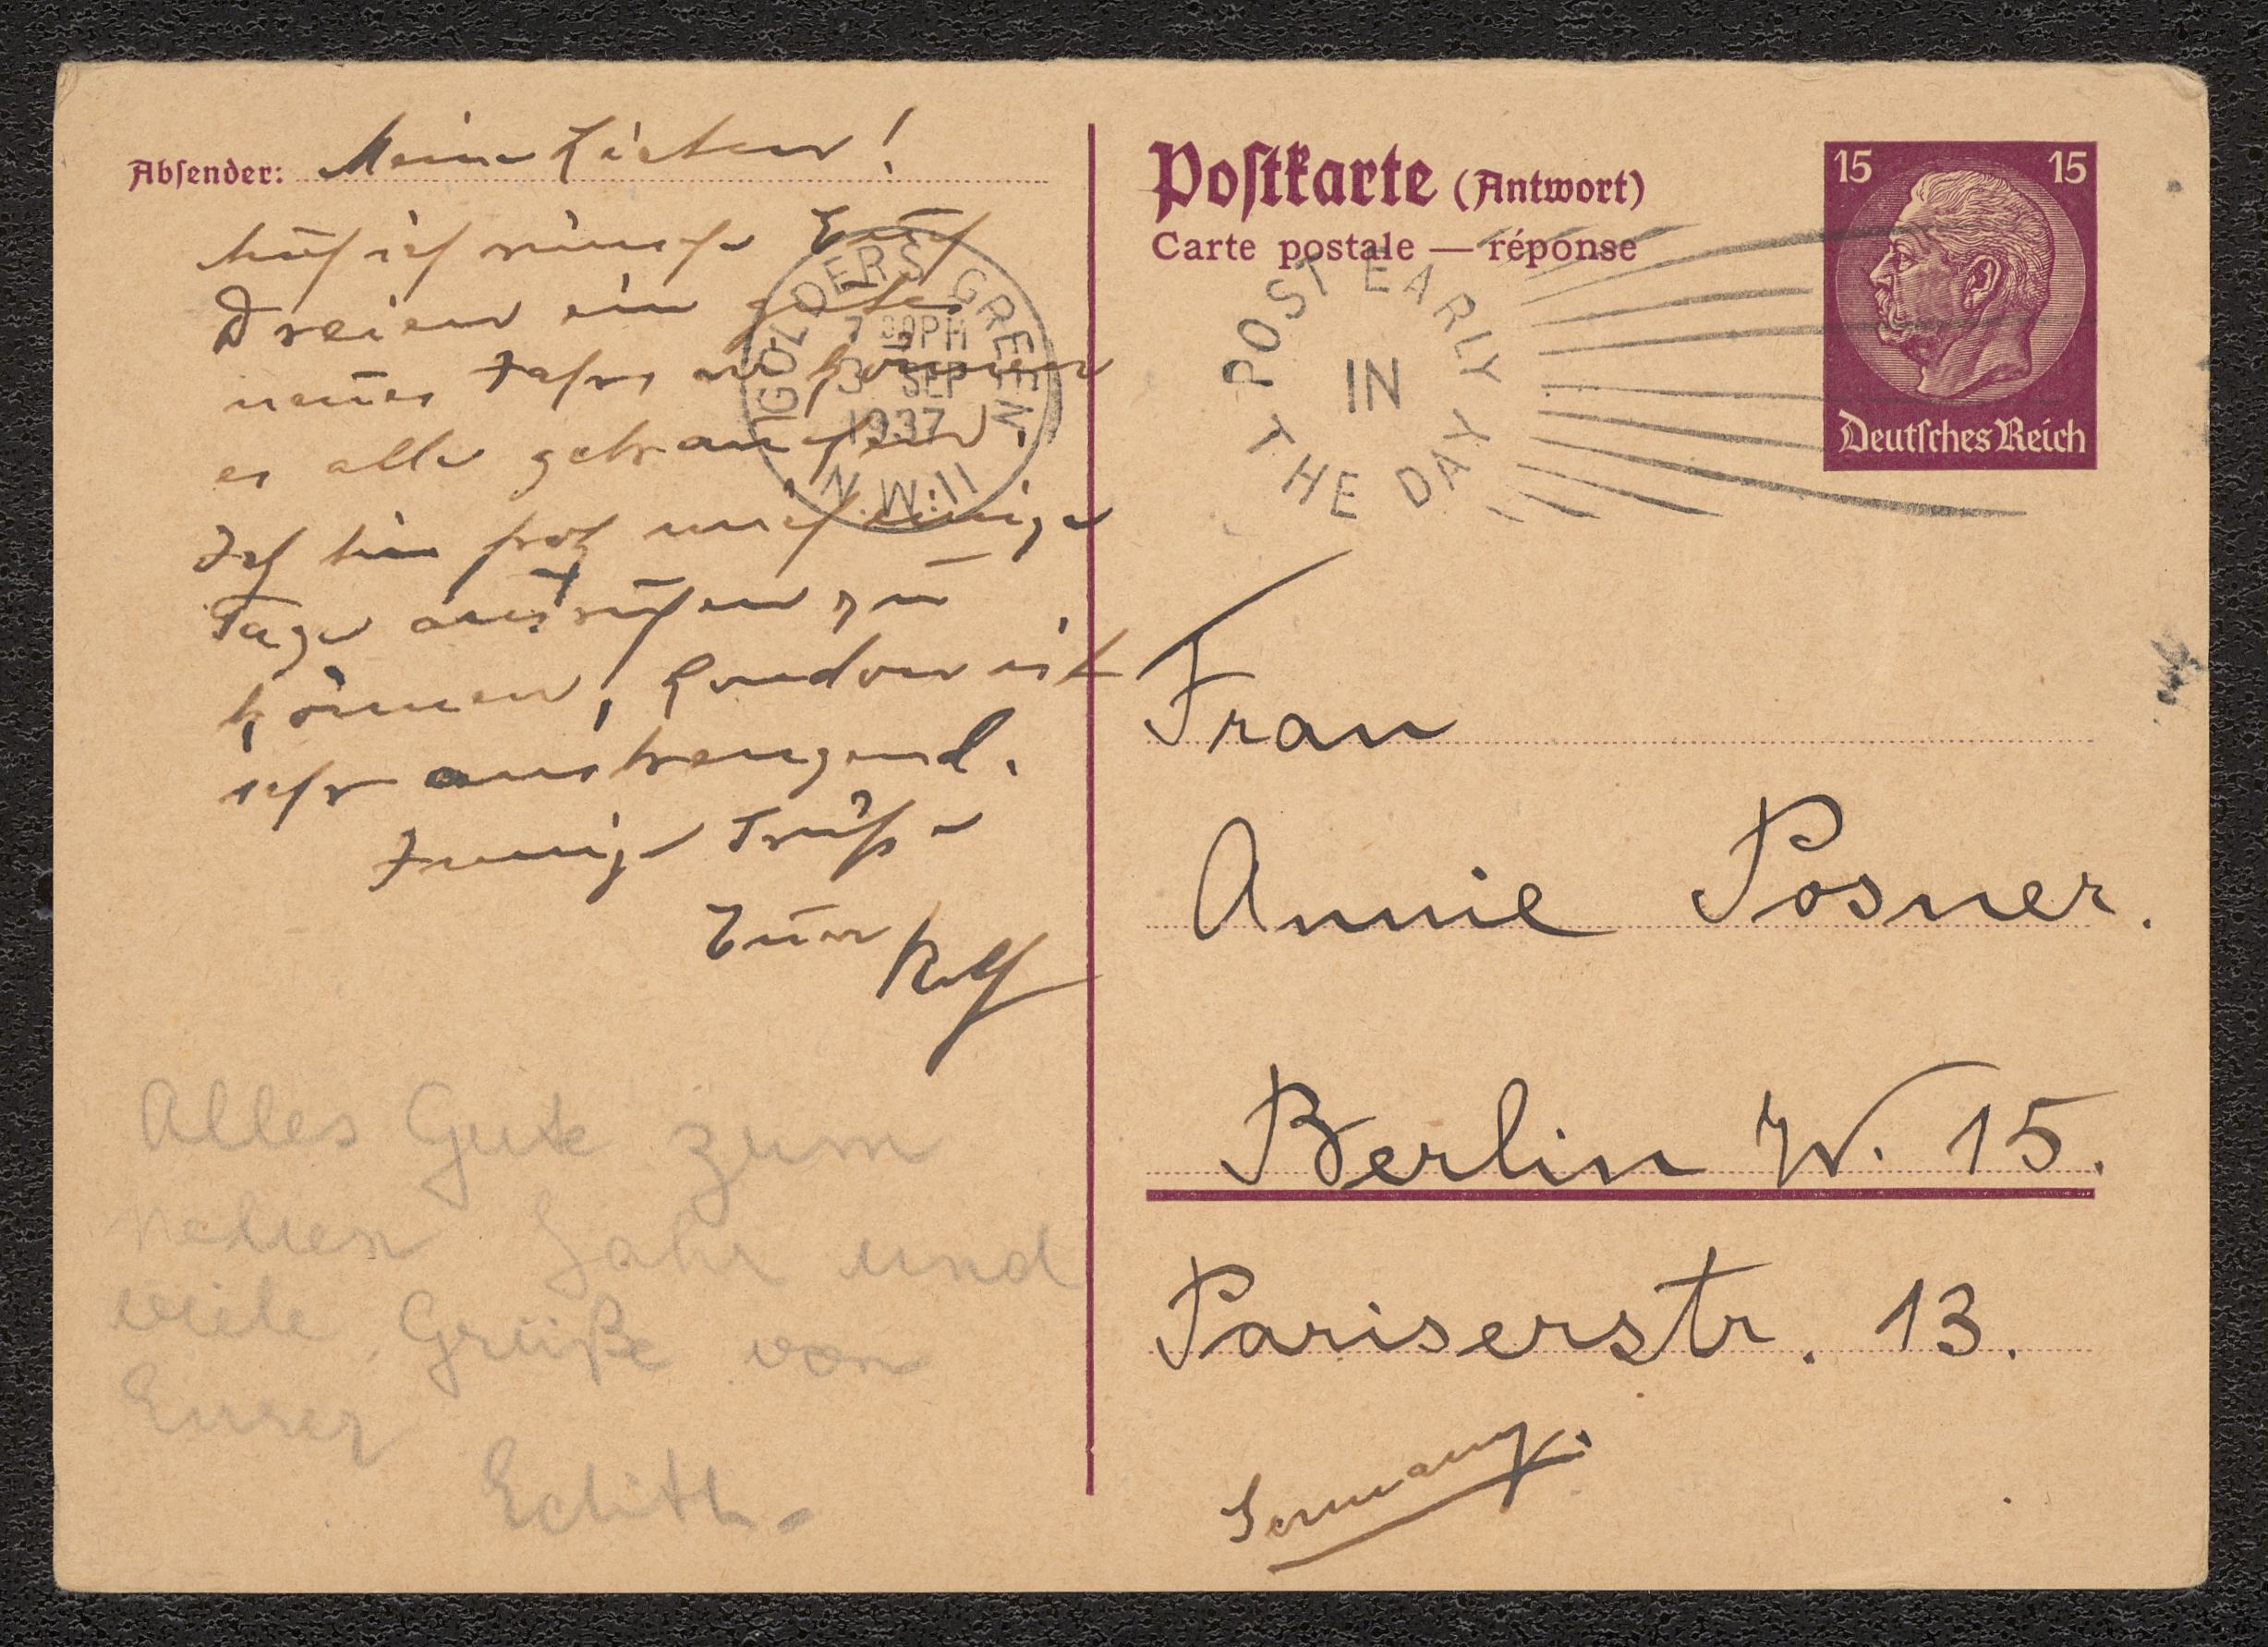 Absender: Meine Lieben!
Auch ich wünsche Euch
Dreien ein gutes
neues Jahr, wir können
es alle gebrauchen.
Ich bin froh mich einige
Tage ausruhen zu
können, London ist
sehr anstrengend.
Innige Grüße
Euer Rolf
Alles Gute zum
neuen Jahr und
viele Grüße von
Eurer
Edith.
GOLDERS GREEN
7 30PM
3 SEP
1937
N.W.11
Postkarte (Antwort)
Carte postale — réponse
POST EARLY
IN
THE DAY
15 15
Deutsches Reich
Frau
Annie Posner.
Berlin W. 15.
Pariserstr. 13.
Germany.